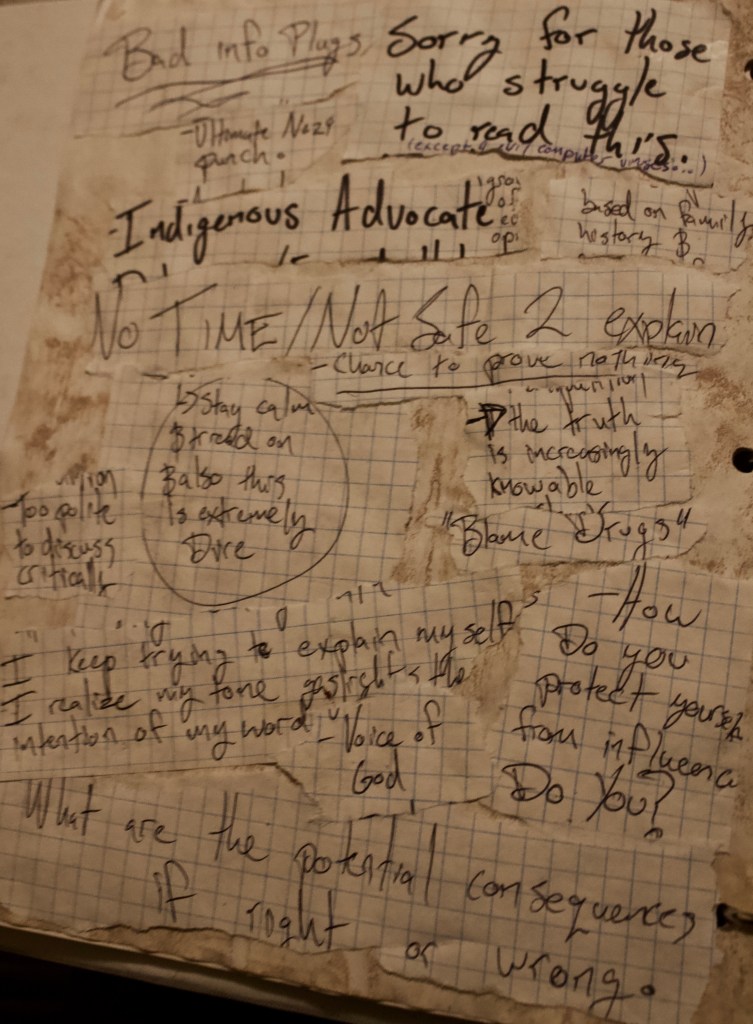 Bad info Plugs
Sorry for those
who struggle
to read this.
(except 4 evil computer viruses...)
-Ultimate
punch.
-Indigenous Advocate
of
based on family
history $.
No TIME/Not Safe 2 explain
-Chance to prove nothing
↳Stay calm
$ tread on
$ also this
is extremely
Dire
the truth
is increasingly
knowable
-Too polite
to discuss
critically
"Blame Drugs"
I keep trying to explain myself
I realize my tone gaslights the
intention of my word
-Voice of
God
-How
Do you
protect yourself
from influence
Do You?
What are the potential consequences
if right or wrong.